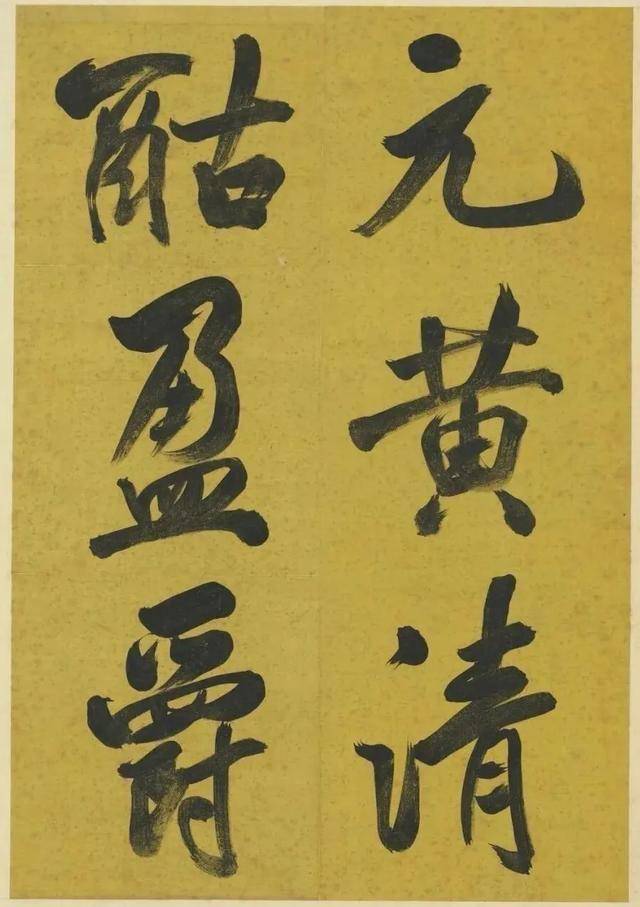 元黄清
酤盈爵